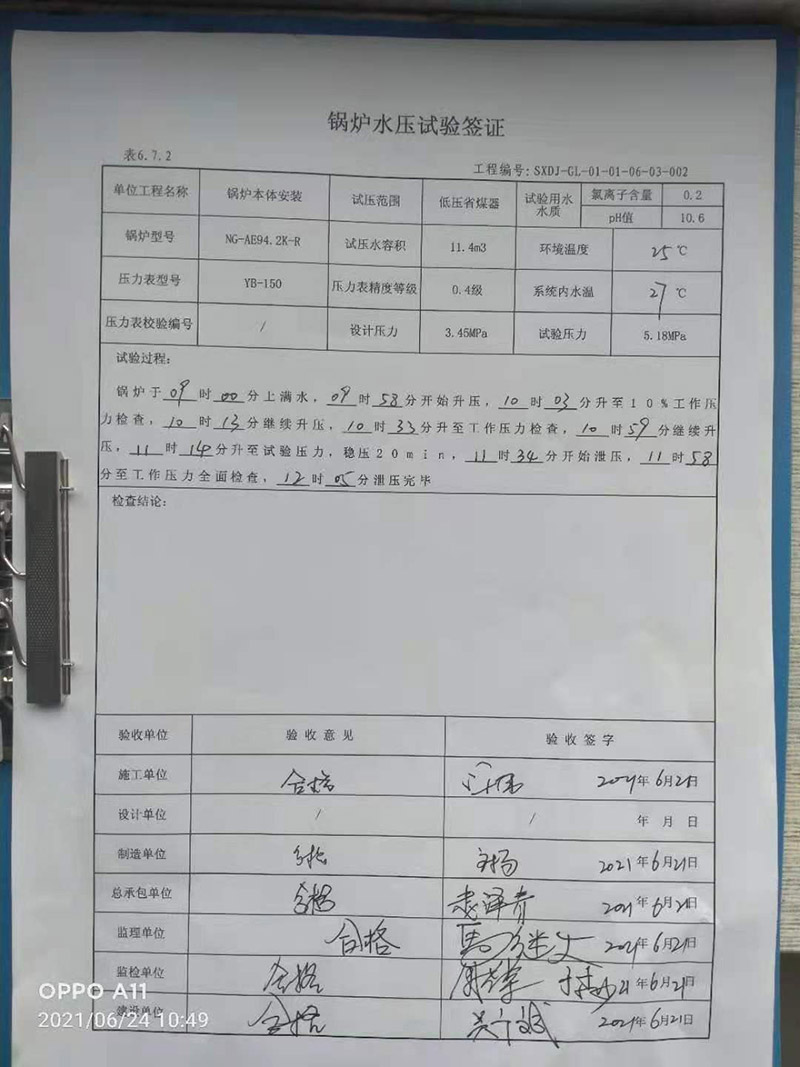 锅炉水压试验签证
表6.7.2
工程编号: SXDJ-GL-01-01-06-03-002
单位工程名称 锅炉本体安装 试压范围 低压省煤器 试验用水水质 氯离子含量 0.2
pH值 10.6
锅炉型号 NG-AE94.2K-R 试压水容积 11.4m3 环境温度 25℃
压力表型号 YB-150 压力表精度等级 0.4级 系统内水温 27℃
压力表校验编号 / 设计压力 3.45MPa 试验压力 5.18MPa
试验过程:
锅炉于09时00分上满水,09时58分开始升压,10时03分升至10%工作压
力检查,10时13分继续升压,10时33分升至工作压力检查,10时59分继续升
压,11时14分升至试验压力,稳压20min,11时34分开始泄压,11时58
分至工作压力全面检查,12时05分泄压完毕
检查结论:
验收单位 验收意见 验收签字
施工单位 合格 2021年6月21日
设计单位 / / 年 月 日
制造单位 合格 2021年6月21日
总承包单位 合格 2021年6月21日
监理单位 合格 2021年6月21日
监检单位 合格 21年6月21日
建设单位 合格 2021年6月21日
OPPO A11
2021/06/24 10:49